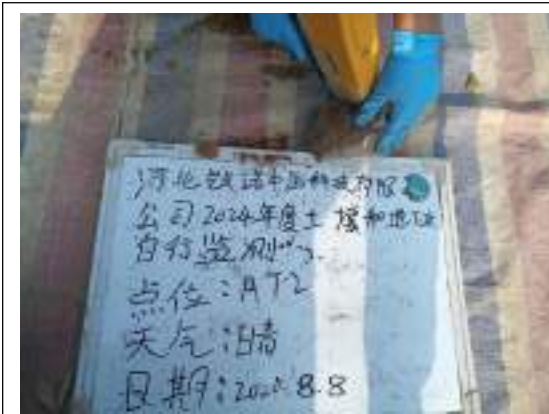 河北 诺 科技有限
公司2024年度土壤和地下水
自行监测
点位:AT2
天气:晴
日期: 8.8